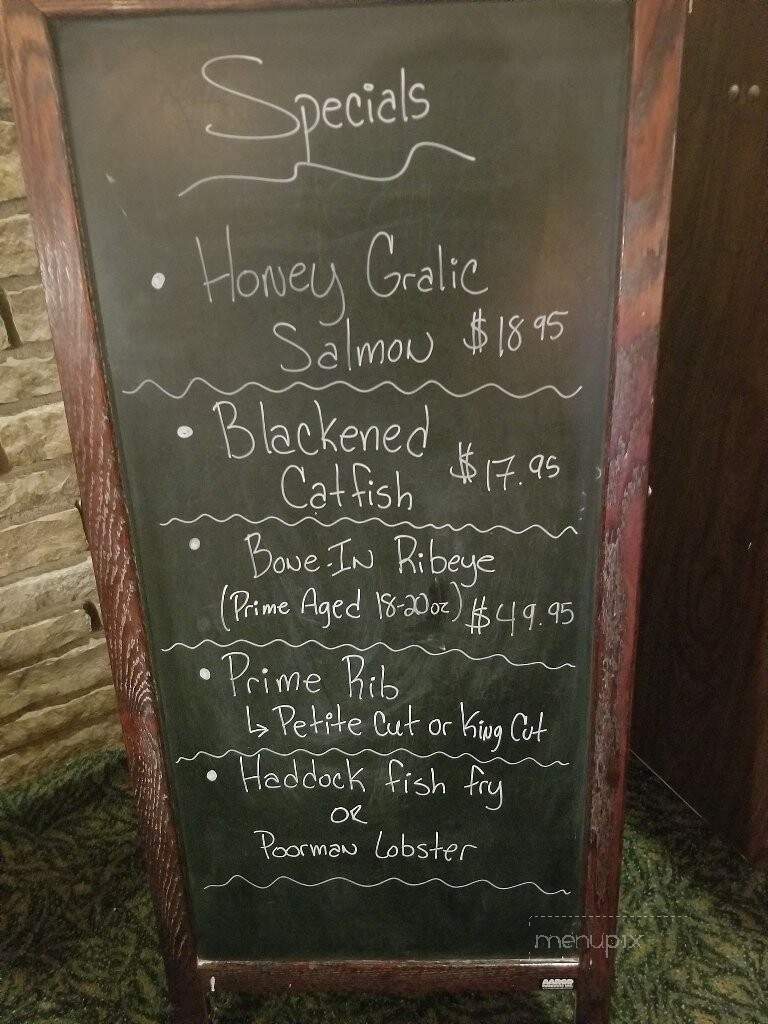 Specials
• Honey Gralic
Salmon $18 95
• Blackened
Catfish $17.95
• Bone-In Ribeye
(Prime Aged 18-20oz) $49.95
• Prime Rib
↳ Petite Cut or King Cut
• Haddock fish fry
OR
Poorman Lobster
menupix
AARCO